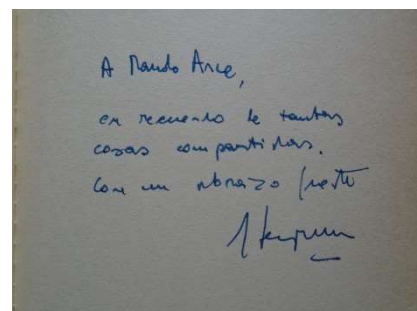 A Mando Arce,
en recuerdo de tantas
cosas compartidas.
Con un abrazo fuerte